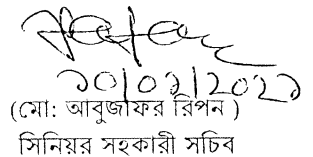 ১০/০১/২০২১
(মো: আবুজাফর রিপন )
সিনিয়র সহকারী সচিব